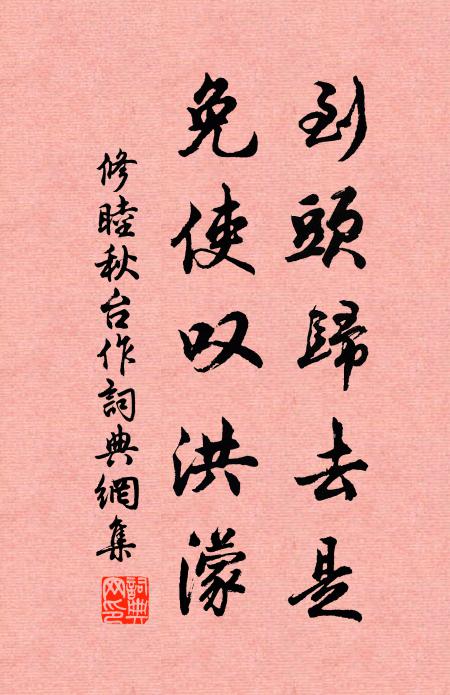 到頭歸去是
免使叹洪濛
修睦秋台作詞典網集
詞典网印